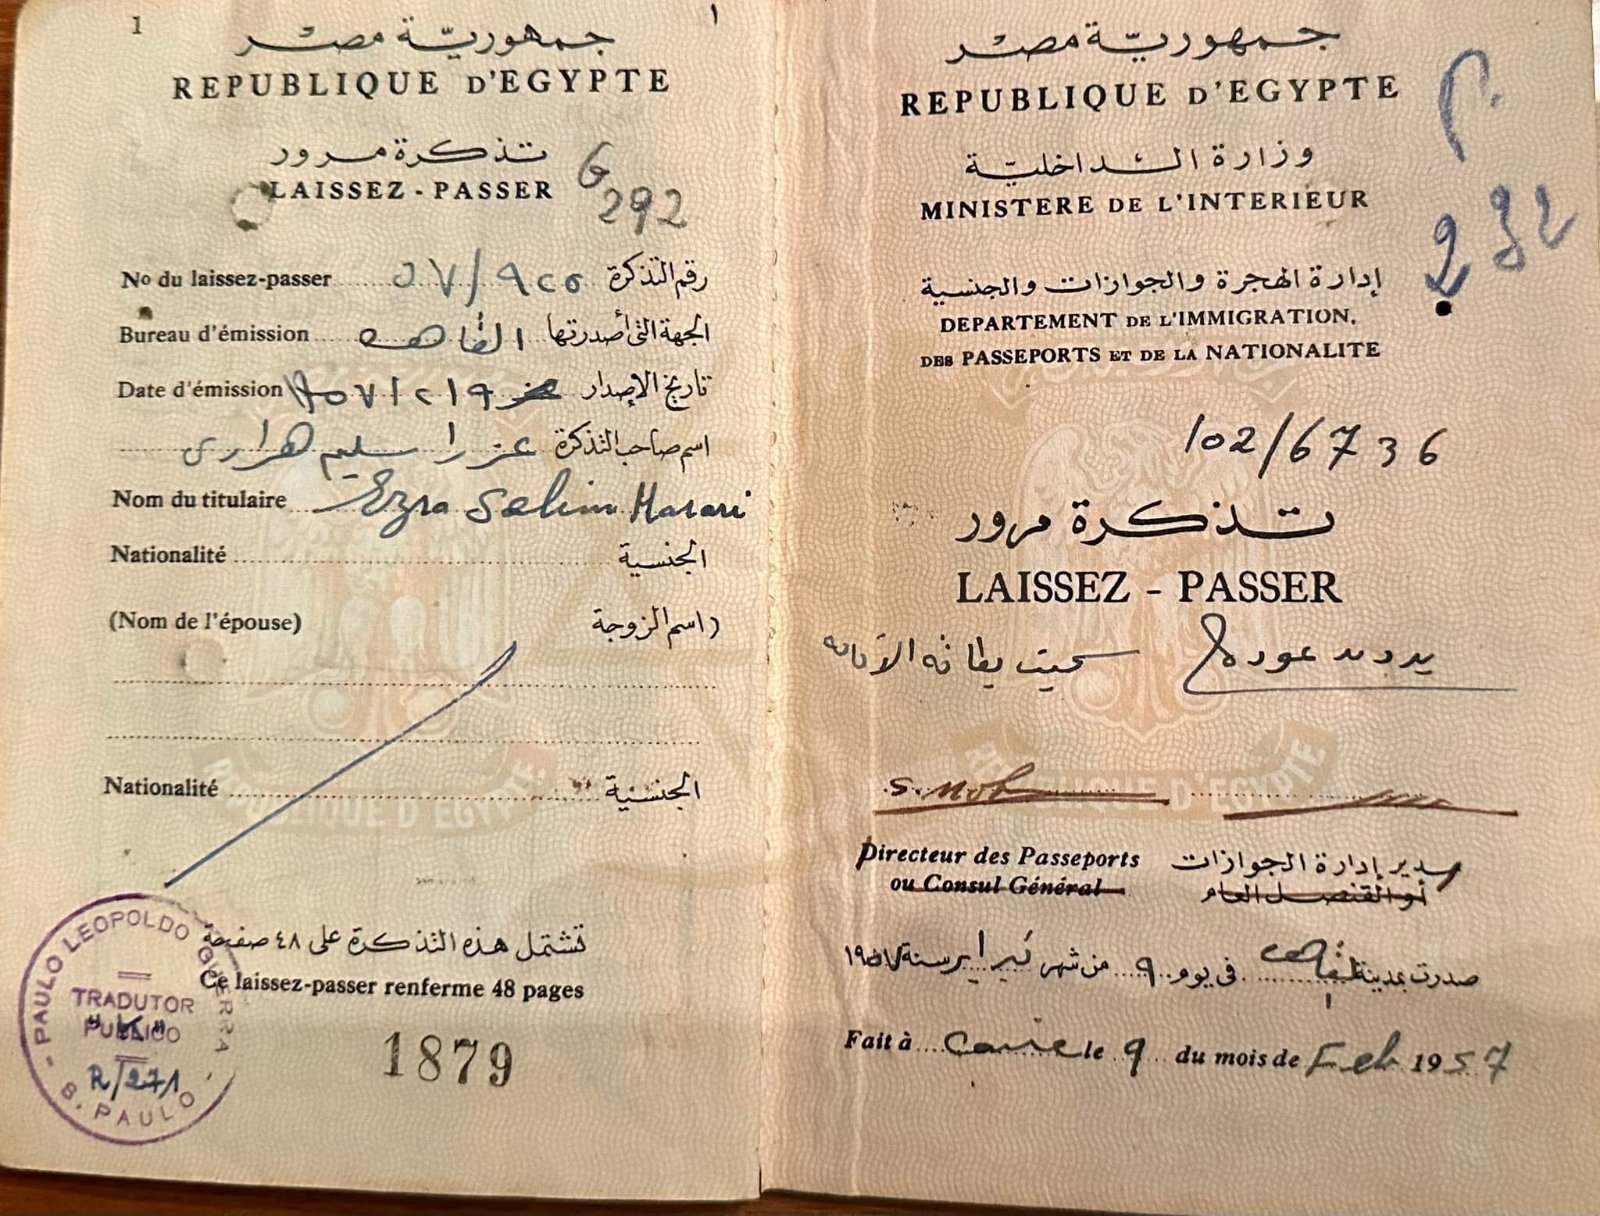 1
١
جمهورية مصر
REPUBLIQUE D'EGYPTE
تذكرة مرور
LAISSEZ - PASSER
G
292
No du laissez-passer ٥٧/٩٢٥ رقم التذكرة
Bureau d'émission القاهرة الجهة التى أصدرتها
Date d'émission ٩/٢/١٩٥٧ تاريخ الإصدار
عزرا سليم هرارى اسم صاحب التذكرة
Nom du titulaire Ezra Selim Harari
Nationalité الجنسية
(Nom de l'épouse) (اسم الزوجة
Nationalité الجنسية
تشتمل هذه التذكرة على ٤٨ صفحة
Ce laissez-passer renferme 48 pages
1879
PAULO LEOPOLDO GUERRA
TRADUTOR
PUBLICO
R/271
S. PAULO
جمهورية مصر
REPUBLIQUE D'EGYPTE
وزارة الداخلية
MINISTERE DE L'INTERIEUR
232
إدارة الهجرة والجوازات والجنسية
DEPARTEMENT DE L'IMMIGRATION,
DES PASSEPORTS ET DE LA NATIONALITE
102/6736
تذكرة مرور
LAISSEZ - PASSER
بدون عودة
سحبت بطاقة الإقامة
REPUBLIQUE D'EGYPTE
REPUBLIQUE D'EGYPTE
Directeur des Passeports مدير إدارة الجوازات
ou Consul Général أو القنصل العام
صدرت بمدينة القاهرة فى يوم ٩ من شهر فبراير سنة ١٩٥٧
Fait à Caire le 9 du mois de Feb 1957